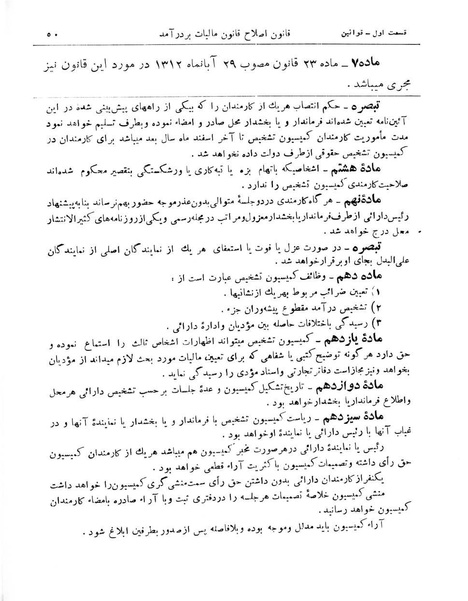 قسمت اول ــ قوانین
قانون اصلاح قانون مالیات بردرآمد
۵۰
ماده۷ ــ ماده ۲۳ قانون مصوب ۲۹ آبانماه ۱۳۱۲ در مورد این قانون نیز
مجری میباشد .
تبصره ــ حکم انتصاب هریك از کارمندان را که بیکی از راههای پیش‌بینی شده در این
آئین‌نامه تعیین شده‌اند فرماندار و یا بخشدار محل صادر و امضاء نموده وبطرف تسلیم خواهد نمود
مدت مأموریت کارمندان کمیسیون تشخیص تا آخر اسفند ماه سال بعد میباشد برای کارمندان در
کمیسیون تشخیص حقوقی ازطرف دولت داده نخواهد شد .
مادهٔ هشتم ــ اشخاصیکه باتهام بزه یا تبه‌کاری یا ورشکستگی بتقصیر محکوم شده‌اند
صلاحیت‌کارمندی کمیسیون تشخیص را ندارد .
مادهٔنهم ــ هرگاه‌کارمندی دردوجلسهٔ متوالی‌بدون‌عذرموجه حضوربهم نرساند بنابه‌پیشنهاد
رئیس‌دارائی ازطرف‌فرمانداریابخشدارمعزول‌ومراتب درمجله‌رسمی ویکی‌ازروزنامه‌های کثیرالانتشار
محل درج خواهد شد .
تبصره ــ در صورت عزل یا فوت یا استعفای هر یك از نمایندگان اصلی از نمایندگان
علی‌البدل بجای او برقرارخواهد شد .
مادهٔ دهم ــ وظائف کمیسیون تشخیص عبارت است از :
۱) تعیین ضرائب مربوط بهریك ازنشانیها .
۲) تشخیص درآمد مقطوع پیشه‌وران جزء .
۳) رسیدگی باختلافات حاصله بین مؤدیان وادارهٔ دارائی .
مادهٔ یازدهم ــ کمیسیون تشخیص میتواند اظهارات اشخاص ثالث را استماع نموده و
حق دارد هر گونه توضیح‌کتبی یا شفاهی که برای تعیین مالیات مورد بحث لازم میداند از مؤدیان
بخواهد ونیز مجازاست دفاتر تجارتی واسناد مؤدی را رسیدگی نماید .
مادهٔ دوازدهم ــ تاریخ‌تشکیل‌کمیسیون و عدهٔ جلسات برحسب تشخیص دارائی هرمحل
واطلاع فرماندار یا بخشدارخواهد بود .
مادهٔ سیزدهم ــ ریاست کمیسیون تشخیص با فرماندار و یا بخشدار یا نمایندهٔ آنها و در
غیاب آنها با رئیس دارائی یا نمایندهٔ اوخواهد بود .
رئیس یا نمایندهٔ دارائی درهرصورت مخبر کمیسیون هم میباشد هریك از کارمندان کمیسیون
حق رأی داشته وتصمیمات کمیسیون باکثریت آراء قطعی خواهد بود .
یکنفرازکارمندان دارائی بدون داشتن حق رأی سمت‌منشی‌گری کمیسیون‌را خواهد داشت
منشی کمیسیون خلاصهٔ تصمیمات هرجلسه را دردفتری ثبت وبا آراء صادره بامضاء کارمندان
کمیسیون خواهد رسانید .
آراء کمیسیون باید مدلل وموجه بوده وبلافاصله پس ازصدور بطرفین ابلاغ شود .